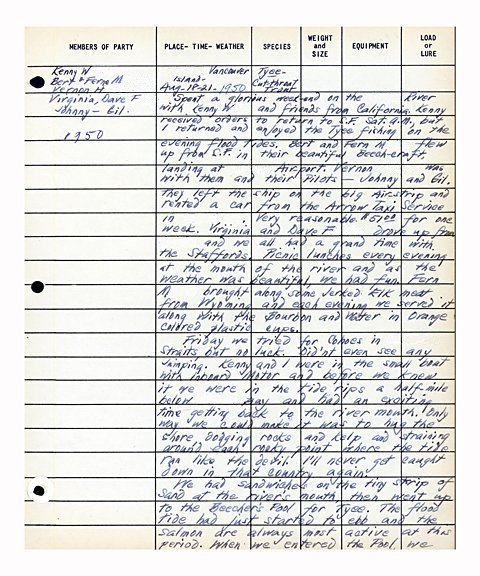 MEMBERS OF PARTY PLACE- TIME- WEATHER SPECIES WEIGHT and SIZE EQUIPMENT LOAD or LURE
Kenny W Vancouver Tyee-
Bert & Fern M Island- Cutthroat
Vernon H Aug-18-21-1950 Trout
Virginia, Dave F Spent a glorious week-end on the River
Johnny - Gil. with Kenny W and friends from California. Kenny
received orders to return to S.F. Sat. A.M. but
1950 I returned and enjoyed the Tyee fishing on the
evening flood tides. Bert and Fern M flew
up from S.F. in their beautiful Beech-craft,
landing at Airport. Vernon was
with them and their Pilots - Johnny and Gil.
they left the ship on the big Airstrip and
rented a car from the Arrow Taxi Service
in . Very reasonable. $51.00 for one
week. Virginia and Dave F drove up from
and we all had a grand time with
the Staffords. Picnic lunches every evening
at the mouth of the river and as the
weather was beautiful, we had fun. Fern
M brought along some Jerked Elk meat
from Wyoming and each evening we served it
along with the Bourbon and Water in Orange
colored plastic cups.
Friday we tried for Cohoes in
Straits but no luck. Didn't even see any
jumping. Kenny and I were in the small boat
with inboard Motor and before we knew
it we were in the tide rips a half-mile
below Bay and had an exciting
time getting back to the river mouth. Only
way we could make it was to hug the
shore, dodging rocks and kelp and straining
around each rocky point where the tide
ran like the devil. I'll never get caught
down in that country again!
We had sandwiches on the tiny strip of
sand at the river's mouth, then went up
to the Beecher's Pool for Tyee. The flood
tide had just started to ebb and the
salmon are always most active at this
period. When we entered the Pool, we